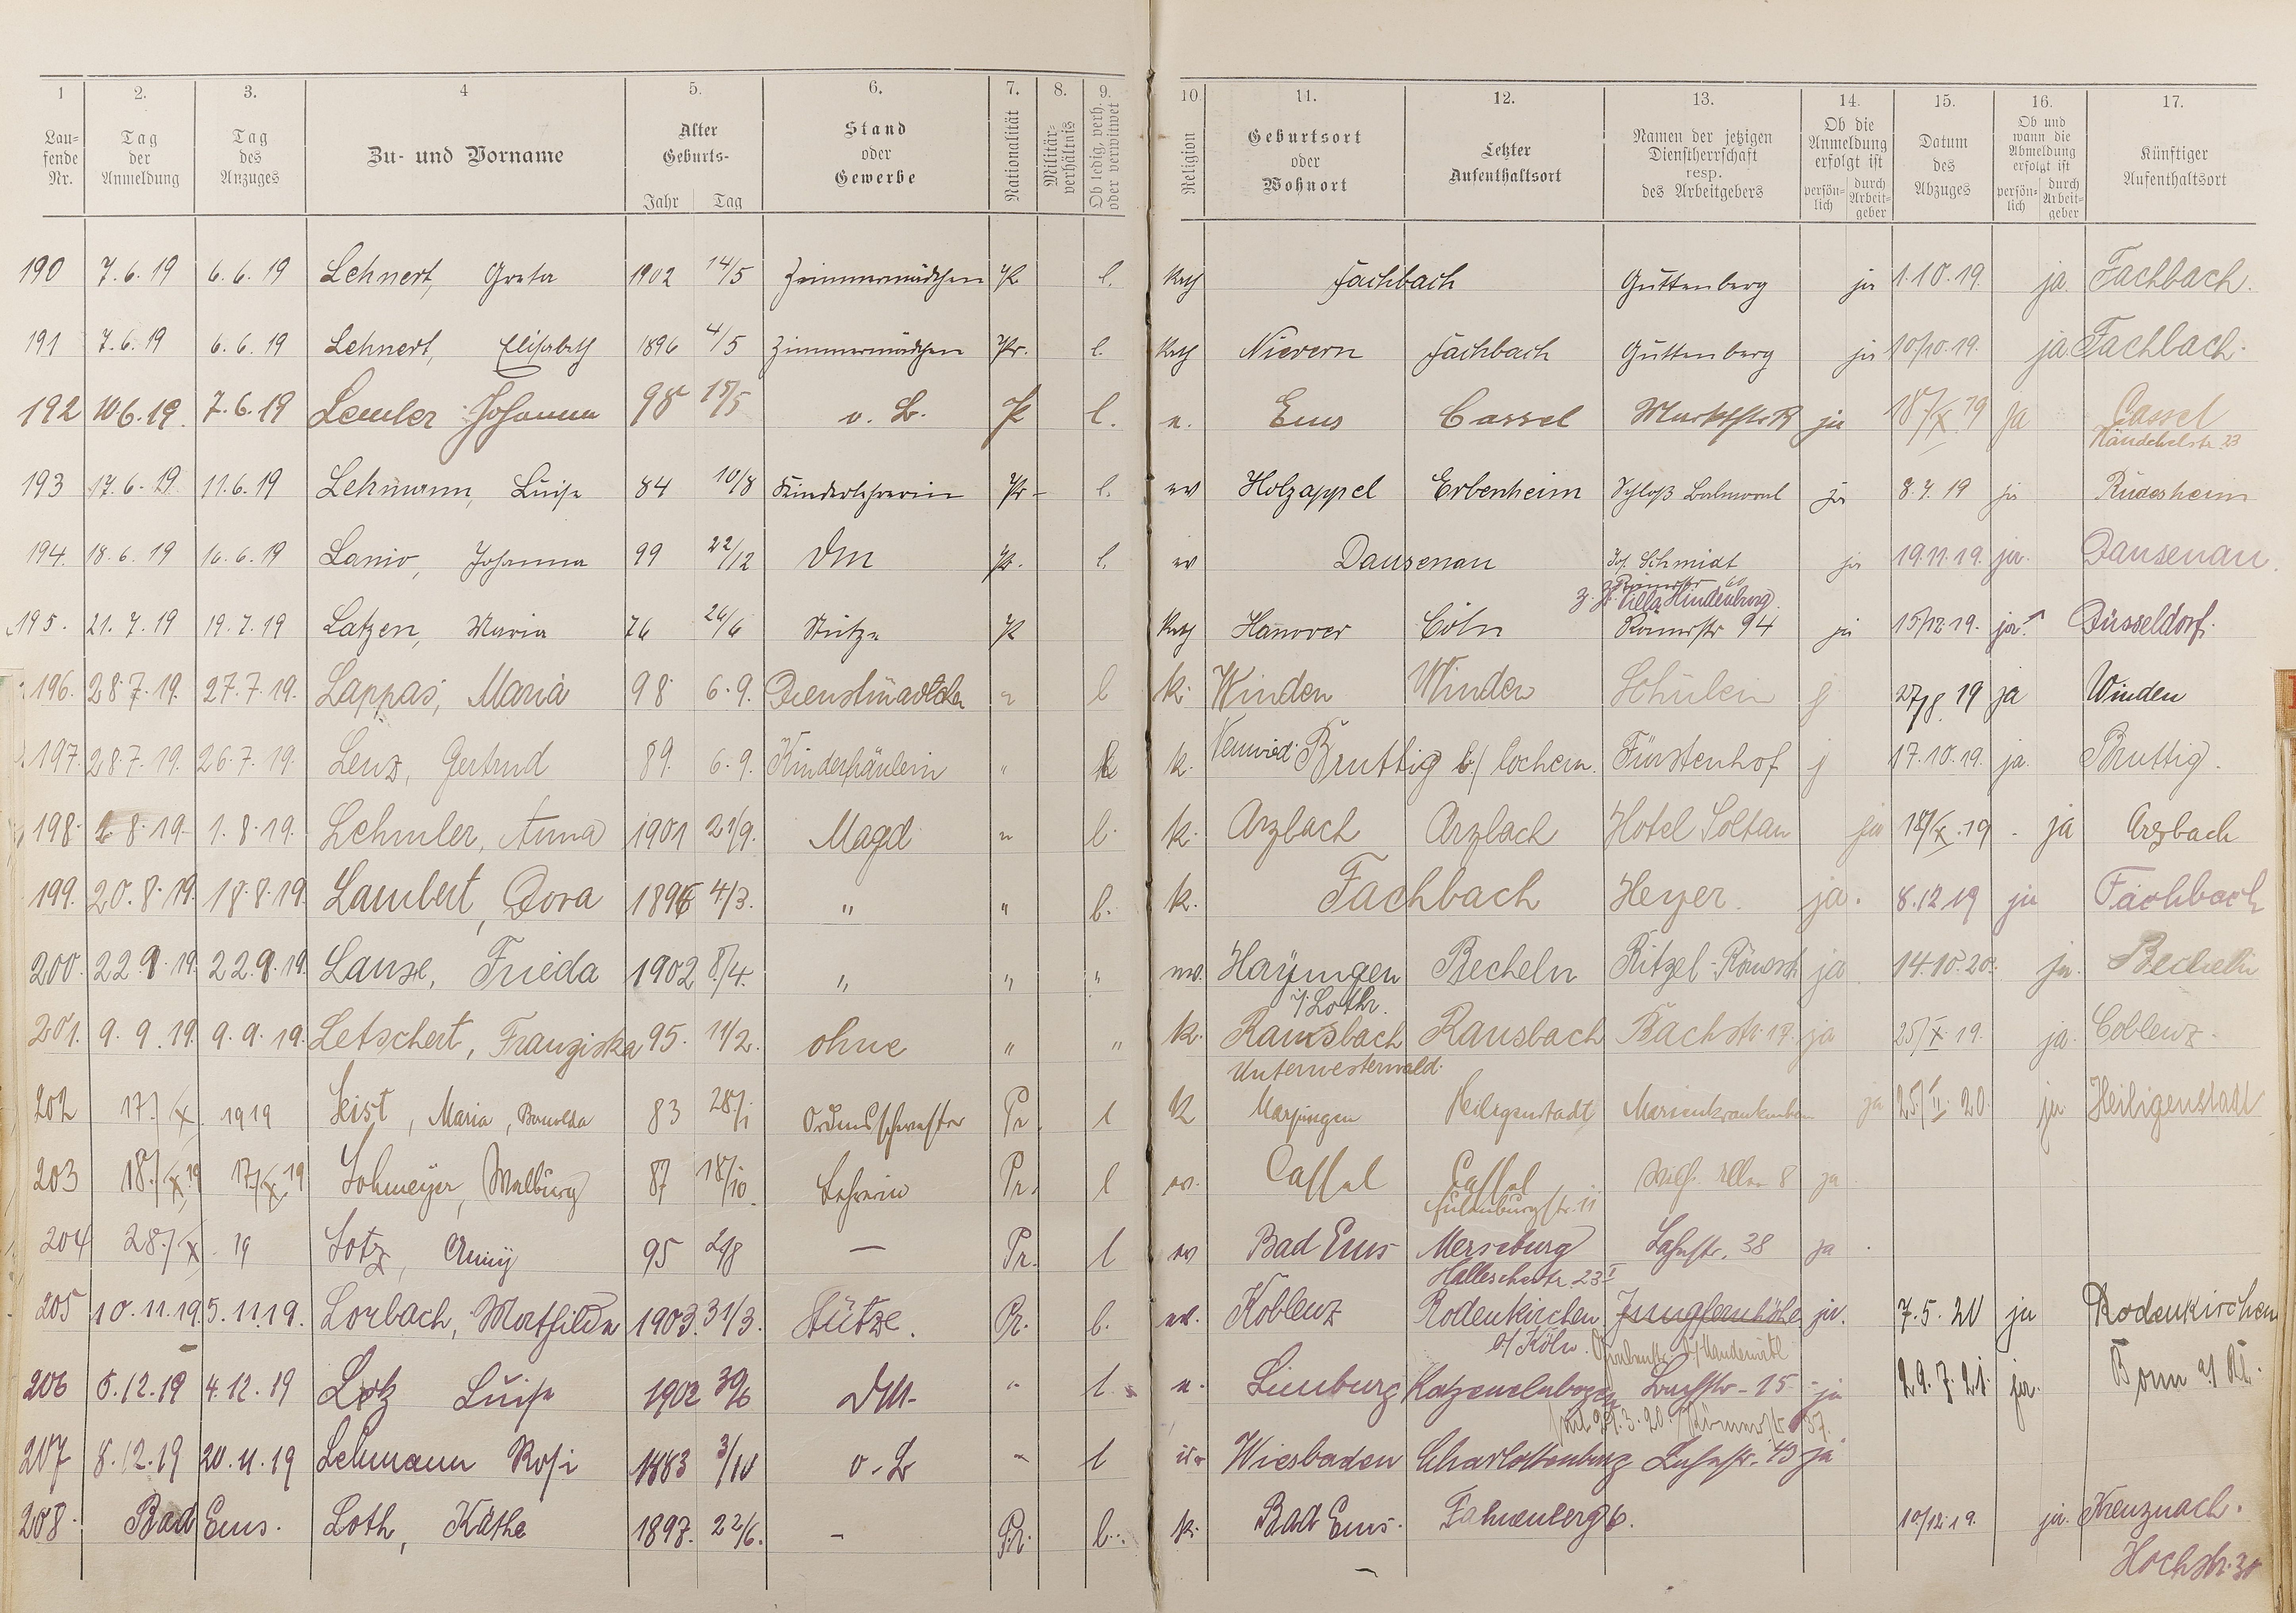 1 2. 3. 4 5. 6. 7. 8. 9. 10 11. 12. 13. 14. 15. 16. 17.
Lau- fende Nr. Tag der Anmeldung Tag des Anzuges Zu- und Vorname Alter Geburts- Jahr Tag Stand oder Gewerbe Nationalität Militär- verhältnis Ob ledig, verh. oder verwitwet Religion Geburtsort oder Wohnort Letzter Aufenthaltsort Namen der jetzigen Dienstherrschaft resp. des Arbeitgebers Ob die Anmeldung erfolgt ist persön- lich durch Arbeit- geber Datum des Abzuges Ob und wann die Abmeldung erfolgt ist persön- lich durch Arbeit- geber Künftiger Aufenthaltsort
190 7.6.19 6.6.19 Lehnert, Greta 1902 14/5 Zimmermädchen Pr l. kath Fachbach Guttenberg ja 1.10.19. ja. Fachbach.
191 7.6.19 6.6.19 Lehnert, Elisabeth 1896 4/5 Zimmermädchen Pr. l. kath Nievern Fachbach Guttenberg ja 10/10.19. ja Fachbach.
192 10.6.19. 7.6.19 Lemler Johanna 98 15/5 o. B. Pr l. e. Ems Cassel ja 18/X.19 ja Cassel
193 17.6.19 11.6.19 Lehmann, Luise 84 10/8 Kinderlehrerin Pr- l. ev Holzappel Erbenheim Schloß Balmoral ja 8.7.19 ja Rüdesheim
194. 18.6.19 16.6.19 Lanio, Johanna 99 22/12 DM Pr. l. ev Dausenau Jos. Schmidt ja 19.11.19. ja. Dausenau.
Römerstr 60
z. Zt. Villa Hindenburg.
195. 21.7.19 19.7.19 Latzen, Maria 76 26/6 Stütze Pr kath Hanover Cöln Römerstr 94 ja 15/12.19. ja. Düsseldorf.
196. 28.7.19. 27.7.19. Lappas, Maria 98 6.9. Dienstmädchen " l k. Winden Winden Schülein j 27/8.19 ja Winden
197. 28.7.19. 26.7.19. Lenz, Gertrud 89. 6.9. Kinderfräulein " k. Neuwied. Bruttig b/ Cochem. Fürstenhof j 17.10.19. ja. Bruttig.
198. 2.8.19. 1.8.19. Lehmler, Anna 1901 21/9. Magd " l. k. Arzbach Arzbach Hotel Soltau ja 18/X.19 - ja Arzbach
199. 20.8.19. 18.8.19. Lambert, Dora 1896 4/3. " " l. k. Fachbach Heyer. ja. 8.12.19 ja Fachbach
200. 22.9.19. 22.9.19. Lanse, Frieda 1902 8/4. " " " ev. Hayingen Becheln Ritzel-Rönsch ja 14.10.20. ja. Becheln
i/Lothr.
201. 9.9.19. 9.9.19. Letschert, Franziska 95. 11/2. ohne " " k. Ransbach Ransbach Bachstr. 17. ja 25/X.19. ja. Coblenz.
Unterwesterwald.
202 17./X. 1919 Leist, Maria, 83 28/I Ordensschwester Pr. l k Marpingen Heiligenstadt ja 25/II.20. ja Heiligenstadt
203 18./X.19 17./X.19 Lohmeyer, Walburg 87 18/10. Lehrerin Pr. l ev. Cassel Cassel Wilh. Allee 8 ja
204 28./X. 19 Lotz, Anny 95 2/8 — Pr. l ev Bad Ems Merseburg Lahnstr. 38 ja.
Hallesche str. 23 I
205 10.11.19. 5.11.19. Lorbach, Mathilde 1903. 31/3. Stütze. Pr. l. ev. Koblenz Rodenkirchen Jungfernhöhe ja. 7.5.20 ja Rodenkirchen
a/ Köln.
206 5.12.19 4.12.19 Lotz Luise 1902 30/6 DM. " l. e. Limburg Katzenelnbogen Bachstr-15- ja 29.7.21. ja. Bonn a/ Rh.
207 8.12.19 20.11.19 Lehmann Rosi 1883 3/10 o. B " l Wiesbaden Charlottenburg Lahnstr. 43 ja
208. Bad Ems. Loth, Käthe 1897. 22/6. - Pr. l. k. Bad Ems. Fahnenberg 6. 10/12.19. ja. Kreuznach.
Hochstr. 30